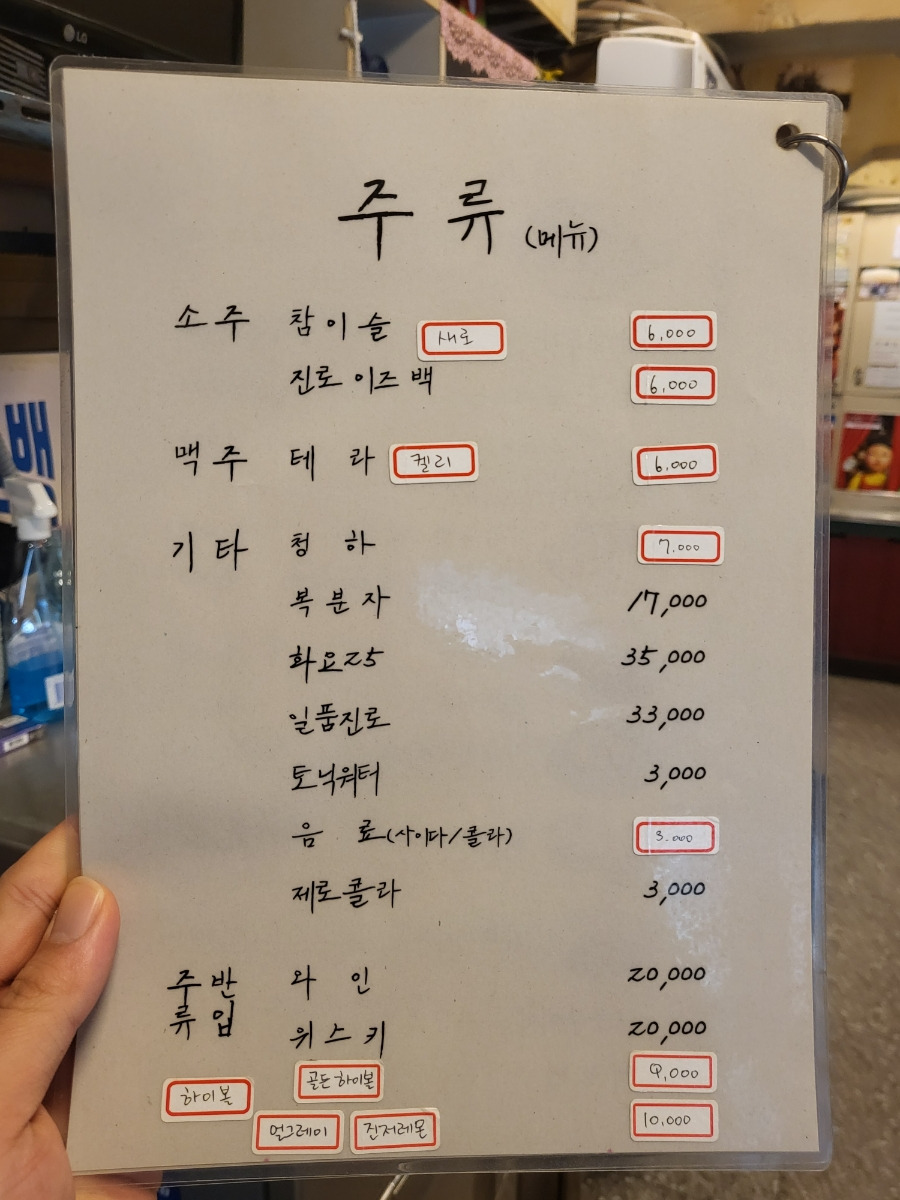 LG
주 류 (메뉴)
소 주 참 이 슬 새로 6,000
진로 이즈 백 6,000
맥 주 테 라 켈리 6,000
기 타 청 하 7,000
복 분 자 17,000
화요25 35,000
일품진로 33,000
토닉워터 3,000
음 료(사이다/콜라) 3.000
제로콜라 3,000
주 반 와 인 20,000
류 입 위 스 키 20,000
하이볼 골든 하이볼 9,000
얼그레이 진저레몬 10,000